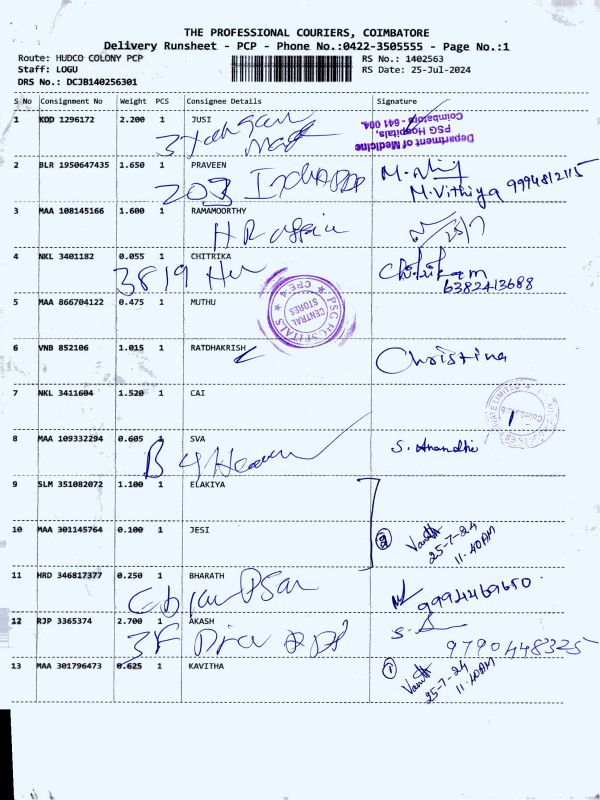 THE PROFESSIONAL COURIERS, COIMBATORE
Delivery Runsheet - PCP - Phone No.:0422-3505555 - Page No.:1
Route: HUDCO COLONY PCP
Staff: LOGU
DRS No.: DCJB140256301
RS No.: 1402563
RS Date: 25-Jul-2024
S No Consignment No Weight PCS Consignee Details Signature
1 KOD 1296172 2.200 1 JUSI
Department of Medicine
PSG Hospitals,
Coimbatore - 641 004.
2 BLR 1950647435 1.650 1 PRAVEEN
203
M.Vithiya 9994812115
3 MAA 108145166 1.600 1 RAMAMOORTHY
HR office
25/7
4 NKL 3401182 0.055 1 CHITRIKA
3819
6382413688
5 MAA 866704122 0.475 1 MUTHU
PSG HOSPITALS
CENTRAL STORES
6 VNB 852106 1.015 1 RATDHAKRISH
Christina
7 NKL 3411604 1.520 1 CAI
8 MAA 109332294 0.605 1 SVA
S. Anandhi
9 SLM 351082072 1.100 1 ELAKIYA
10 MAA 301145764 0.100 1 JESI
2
25-7-24
11.40AM
11 HRD 346817377 0.250 1 BHARATH
9994469650
12 RJP 3365374 2.700 1 AKASH
3F
9790448325
13 MAA 301796473 0.625 1 KAVITHA
1
25-7-24
11.40AM